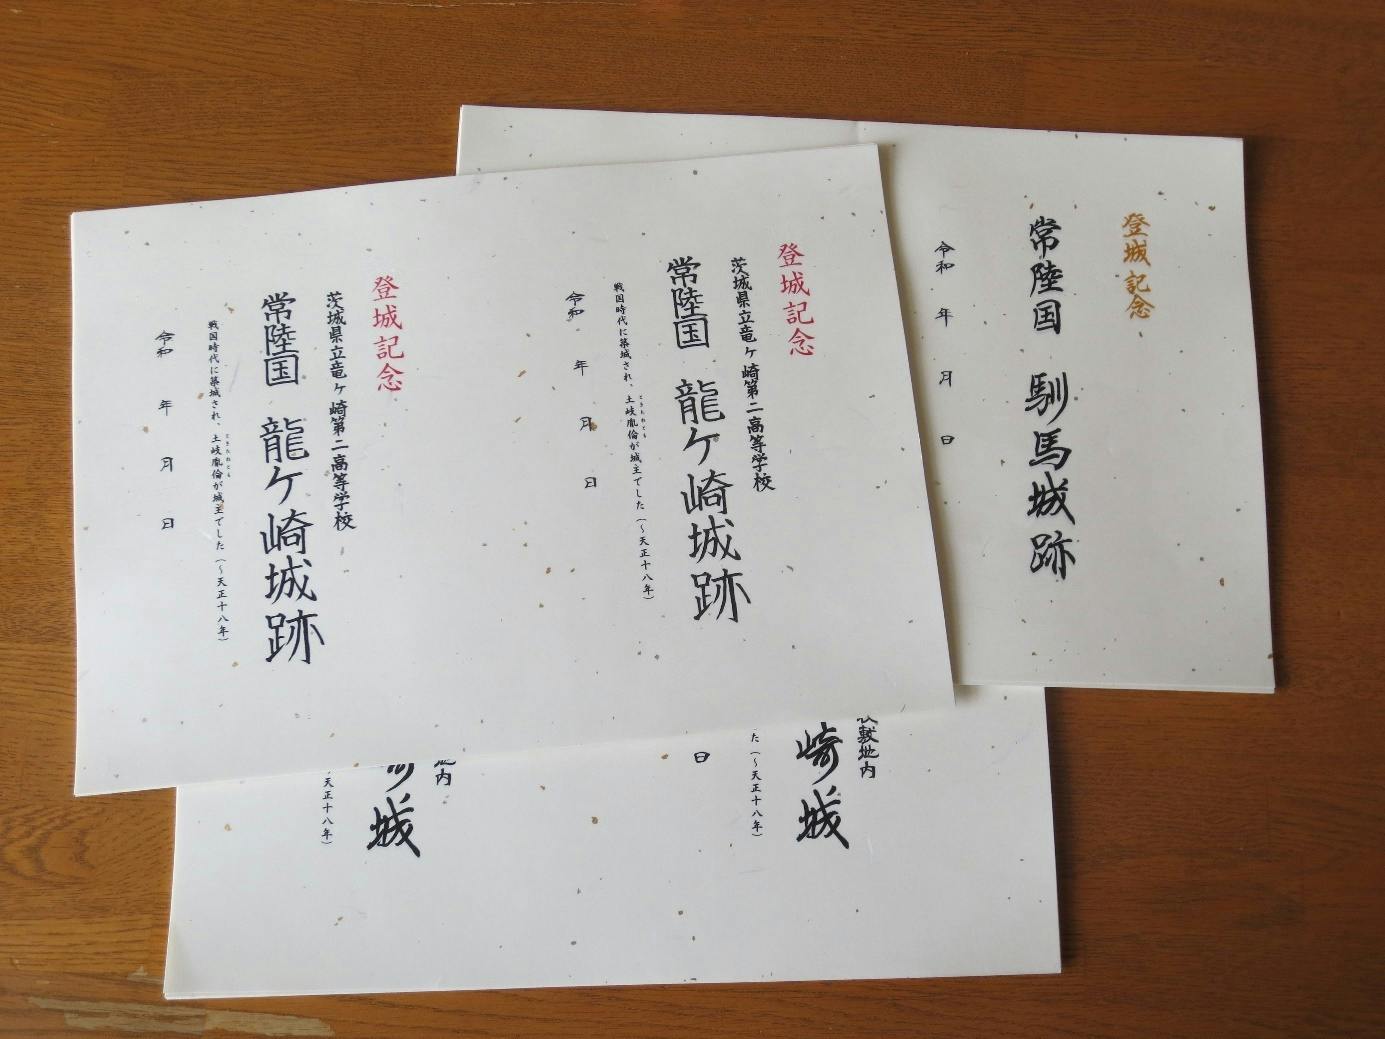 登城記念
茨城県立竜ケ崎第二高等学校
常陸国 龍ケ崎城跡
戦国時代に築城され、土岐胤倫が城主でした(～天正十八年)
ときたねとも
令和 年 月 日
登城記念
茨城県立竜ケ崎第二高等学校
常陸国 龍ケ崎城跡
戦国時代に築城され、土岐胤倫が城主でした(～天正十八年)
ときたねとも
令和 年 月 日
登城記念
常陸国 馴馬城跡
令和 年 月 日
敷地内
崎城
た(～天正十八年)
日
内
城
天正十八年)